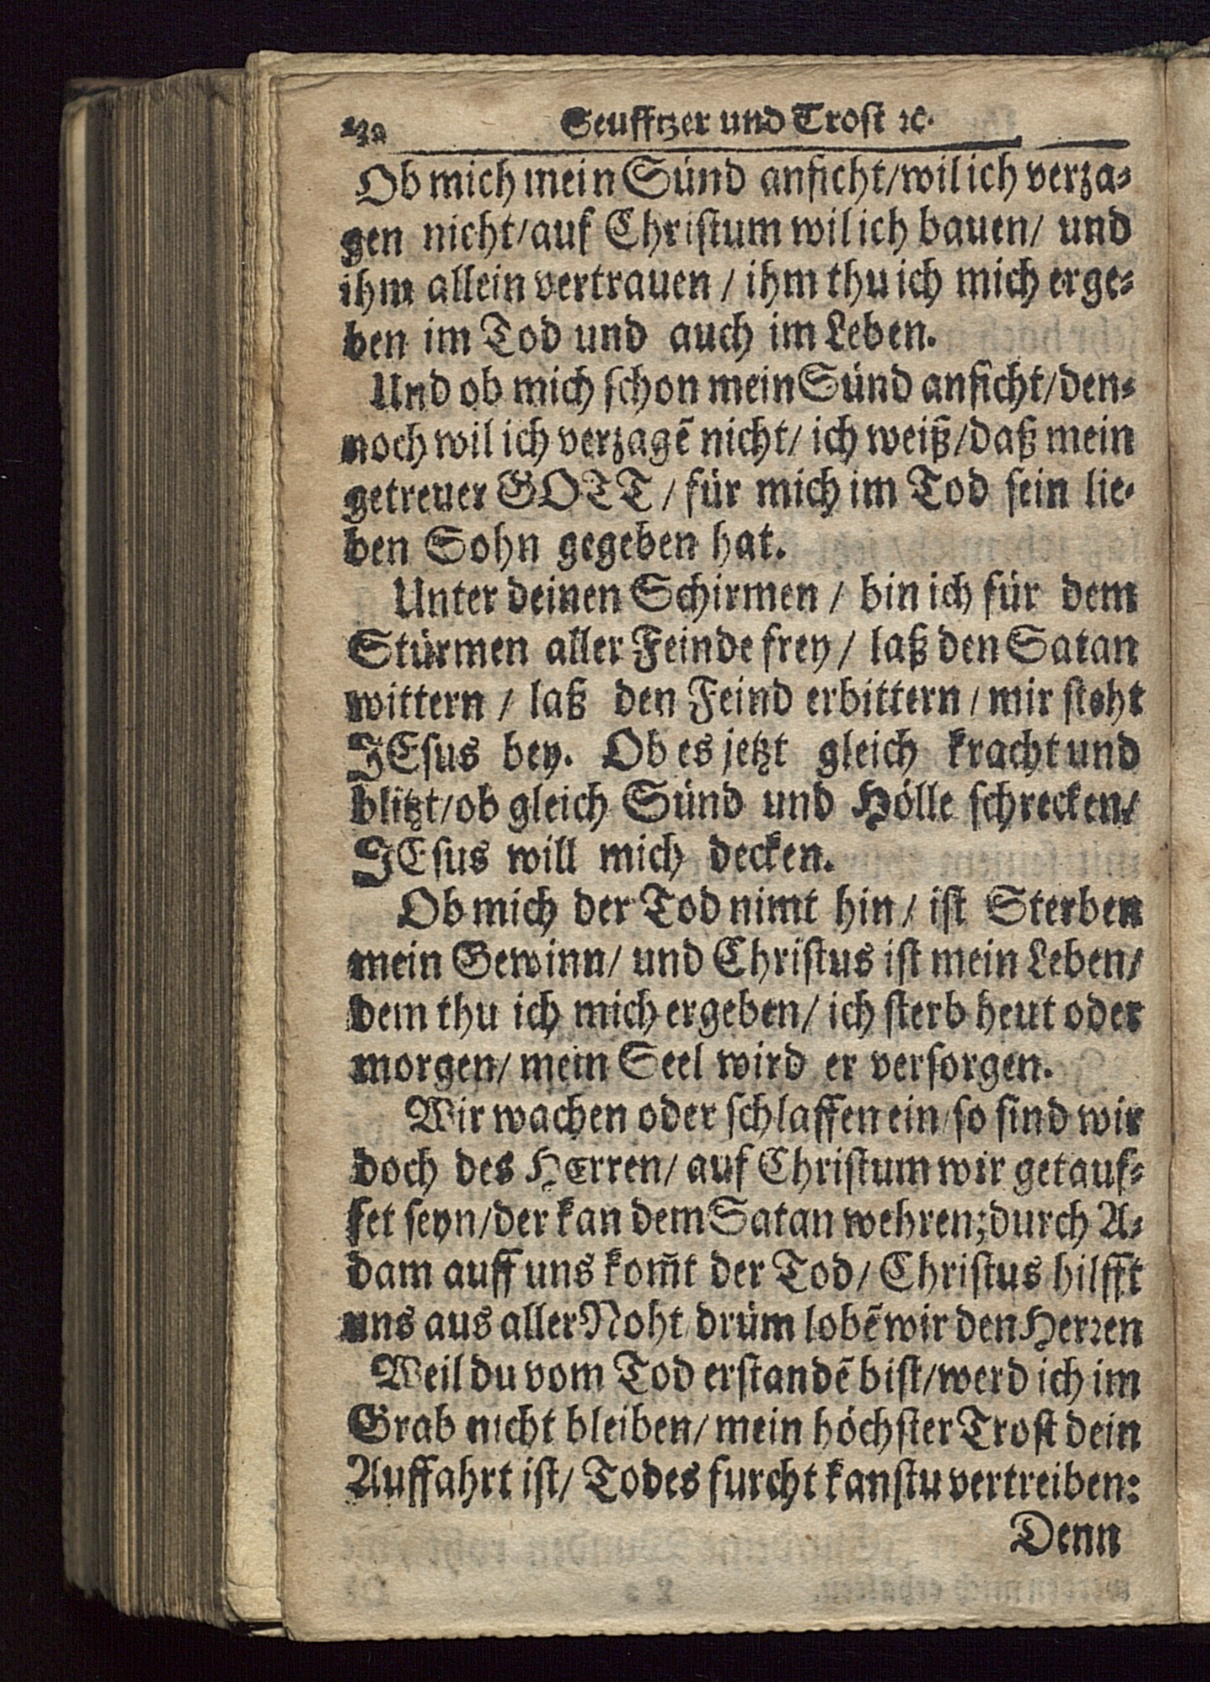 Seufftzer und Trost ꝛc.
Ob mich mein Sünd anficht/wil ich verza-
gen nicht/auf Christum wil ich bauen/ und
ihm allein vertrauen / ihm thu ich mich erge-
ben im Tod und auch im Leben.
Und ob mich schon mein Sünd anficht/den-
noch wil ich verzagẽ nicht/ ich weiß/daß mein
getreuer GOTT / für mich im Tod sein lie-
ben Sohn gegeben hat.
Unter deinen Schirmen / bin ich für dem
Stürmen aller Feinde frey / laß den Satan
wittern / laß den Feind erbittern / mir steht
JEsus bey. Ob es jetzt gleich kracht und
blitzt/ob gleich Sünd und Hölle schrecken/
JEsus will mich decken.
Ob mich der Tod nimt hin / ist Sterben
mein Gewinn/ und Christus ist mein Leben/
dem thu ich mich ergeben/ ich sterb heut oder
morgen/ mein Seel wird er versorgen.
Wir wachen oder schlaffen ein/so sind wir
doch des HErren/ auf Christum wir getauf-
fet seyn/der kan dem Satan wehren;durch A-
dam auff uns kom̃t der Tod/ Christus hilfft
uns aus aller Noht/drüm lobẽ wir den Herꝛen
Weil du vom Tod erstandẽ bist/werd ich im
Grab nicht bleiben/ mein höchster Trost dein
Auffahrt ist/ Todes furcht kanstu vertreiben:
Denn